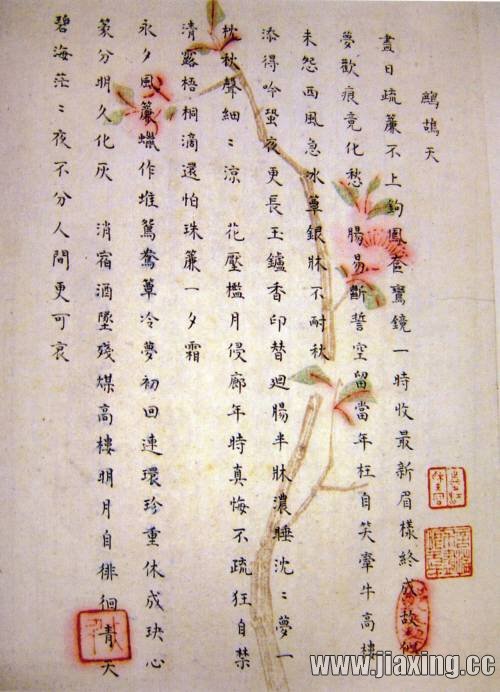 鷓鴣天
盡日疏簾不上鉤鳳奩鸞鏡一時收最新眉樣終成故似
夢歡痕竟化愁 腸易斷誓空留當年枉自笑牽牛高樓
未怨西風急冰簟銀牀不耐秋
添得吟蛩夜更長玉鑪香印替迴腸半牀濃睡沈〻夢一
枕秋聲細〻涼 花壓檻月侵廊年時真悔不疏狂自禁
清露梧桐滴還怕珠簾一夕霜
永夕風簾蠟作堆鴛鴦簟冷夢初回連環珍重休成玦心
篆分明久化灰 消宿酒墜殘煤高樓明月自徘徊青天
碧海茫〻夜不分人間更可哀
www.jiaxing.cc